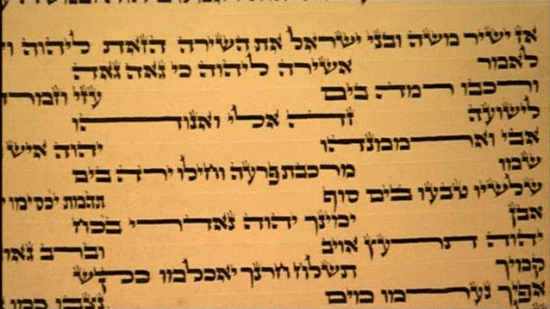 אז ישיר משה ובני ישראל את השירה הזאת ליהוה
לאמר אשירה ליהוה כי גאה גאה
ורכבו רמה בים עזי וזמרת
לישועה זה אלי ואנוהו
אבי וארממנהו יהוה איש
שמו מרכבת פרעה וחילו ירה בים
שלשיו טבעו בים סוף תהמת יכסימו
אבן ימינך יהוה נאדרי בכח
יהוה תרעץ אויב וברב גאו
קמיך תשלח חרנך יאכלמו כקש
אפיך נערמו מים נצבו כמו